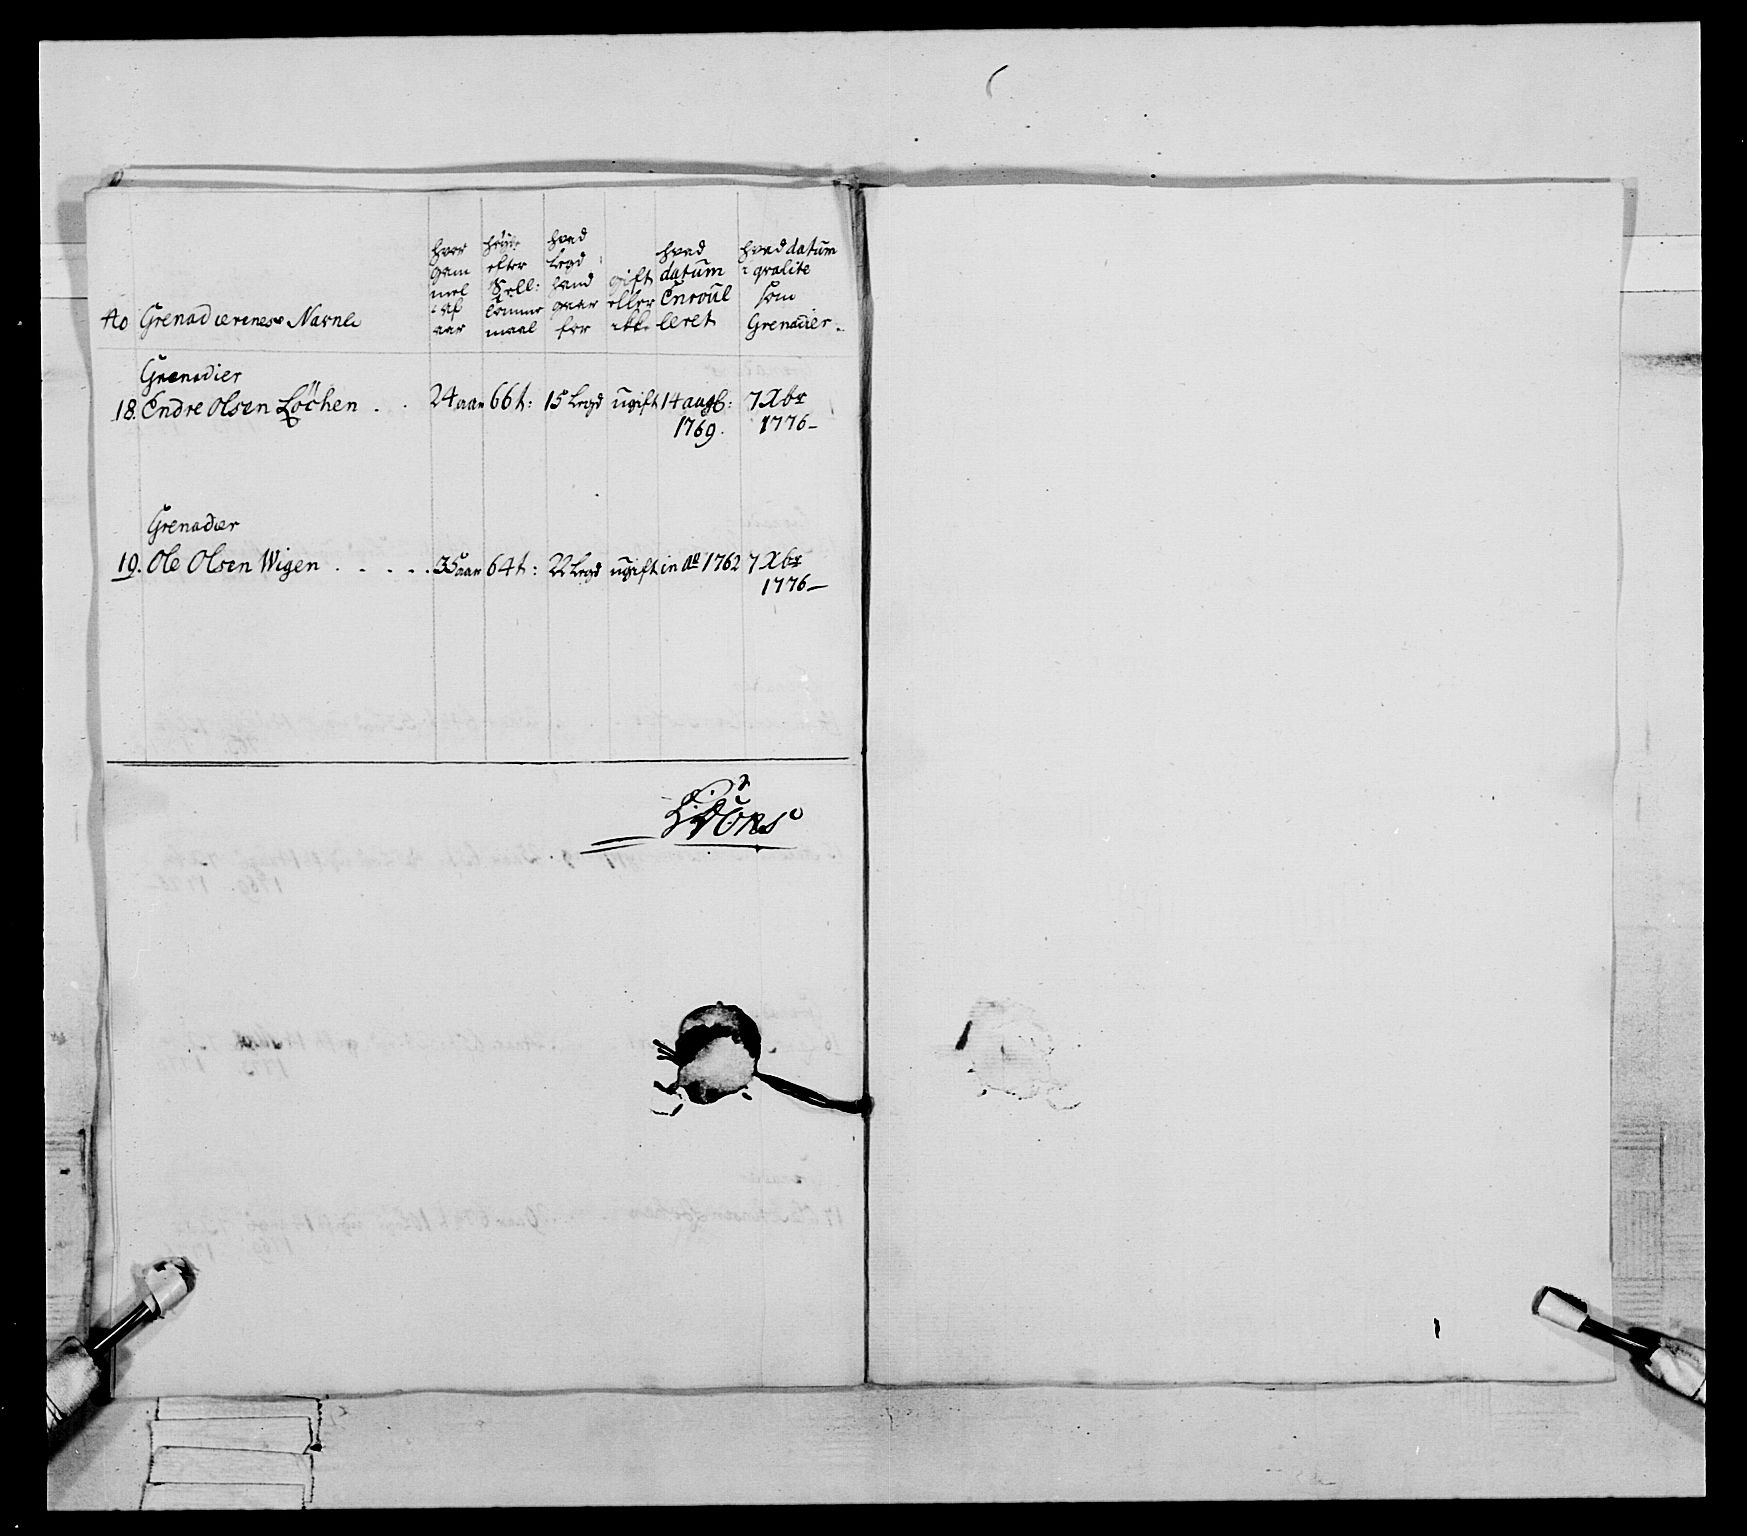 No Grenadierenes Navne
hvor gammel af aar
høide efter Sell: lomme maal
hvad Legd hand staar for
gift eller ikke
hvad datum Enroulleret
hvad datum i qvalite som Grenadier.
Grenadier
18. Endre Olsen Løchen . . 24 aar 66 t: 15 Legd ugift 14 augl: 7 Xbr
1769. 1776-
Grenadier
19. Ole Olsen Wigen . . . . . 35 aar 64 t: 22 Legd ugift in ao 1762 7 Xbr
1776-